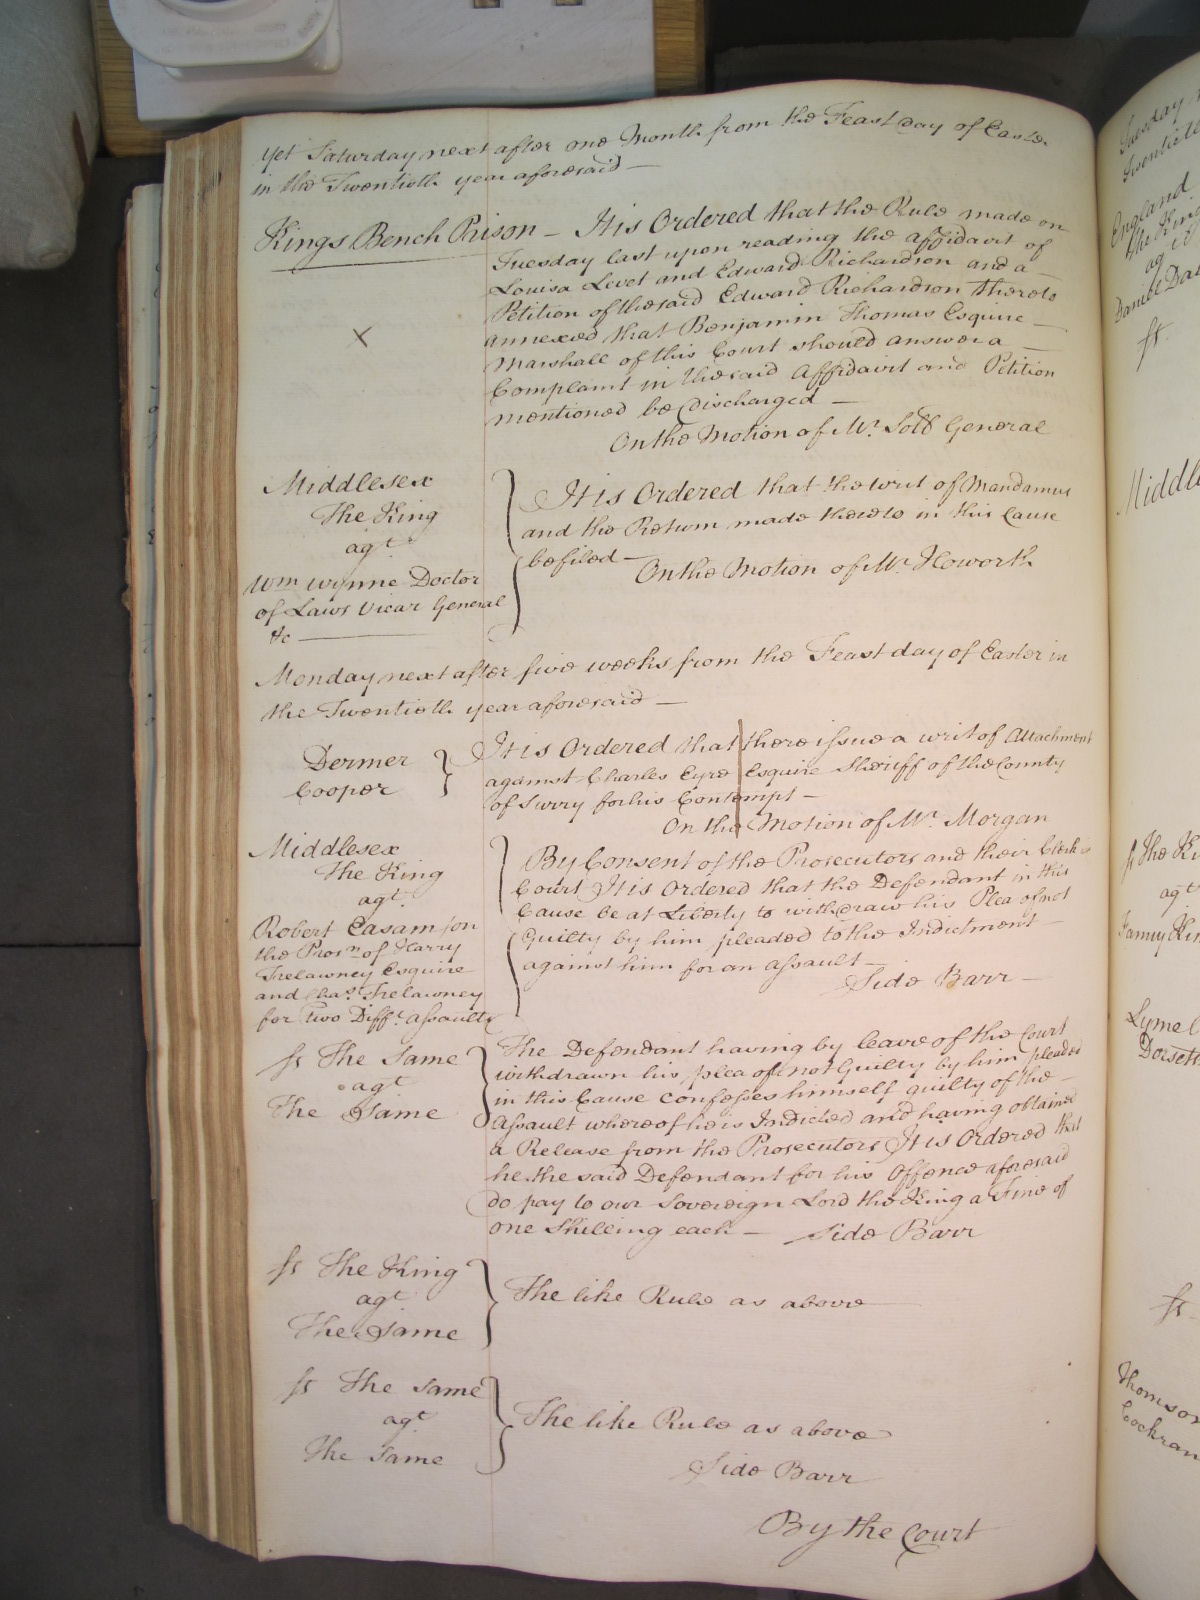 Yet Saturday next after one Month from the Feast day of Easter
in the Twentieth year aforesaid —
Kings Bench Prison — It is Ordered that the Rule made on
Tuesday last upon reading the affidavit of
Louisa Levet and Edward Richardson and a —
Petition of the said Edward Richardson thereto
annexed that Benjamin Thomas Esquire —
Marshall of this Court should answer a —
Complaint in the said Affidavit and Petition
mentioned be discharged —
On the Motion of Mr. Solr General
×
Middlesex
The King
agt
Wm Wynne Doctor
of Laws Vicar General
&c —
It is Ordered that the writ of Mandamus
and the Return made thereto in this Cause
be filed —
On the Motion of Mr. Howorth
Monday next after five weeks from the Feast day of Easter in
the Twentieth year aforesaid —
Dermer
Cooper
It is Ordered that there issue a writ of Attachment
against Charles Eyre Esquire Sheriff of the County
of Surry for his Contempt —
On the Motion of Mr. Morgan
Middlesex
The King
agt.
Robert Casamjon
the Prosn of Harry
Trelawney Esquire
and Chas. Trelawney
for two Difft. assaults
By Consent of the Prosecutors and their Clerk in
Court It is Ordered that the Defendant in this
Cause be at Liberty to withdraw his Plea of not
Guilty by him pleaded to the Indictment
against him for an assault —
Side Barr —
fs The Same
agt
The Same
The Defendant having by leave of the Court
withdrawn his plea of not Guilty by him pleaded
in this Cause confesses himself guilty of the —
Assault whereof he is Indicted and having obtained
a Release from the Prosecutors It is Ordered that
he the said Defendant for his Offence aforesaid
do pay to our Sovereign Lord the King a Fine of
one Shilling each — Side Barr
fs The King
agt
The Same
The like Rule as above
fs The Same
agt
The Same
The like Rule as above
Side Barr
By the Court
Tuesday
Twentieth
England
The King
ag
Daniel
fs.
Middle
fs The Ki
agt
Lyme
Dorset
fs.
Thomson
Cochran